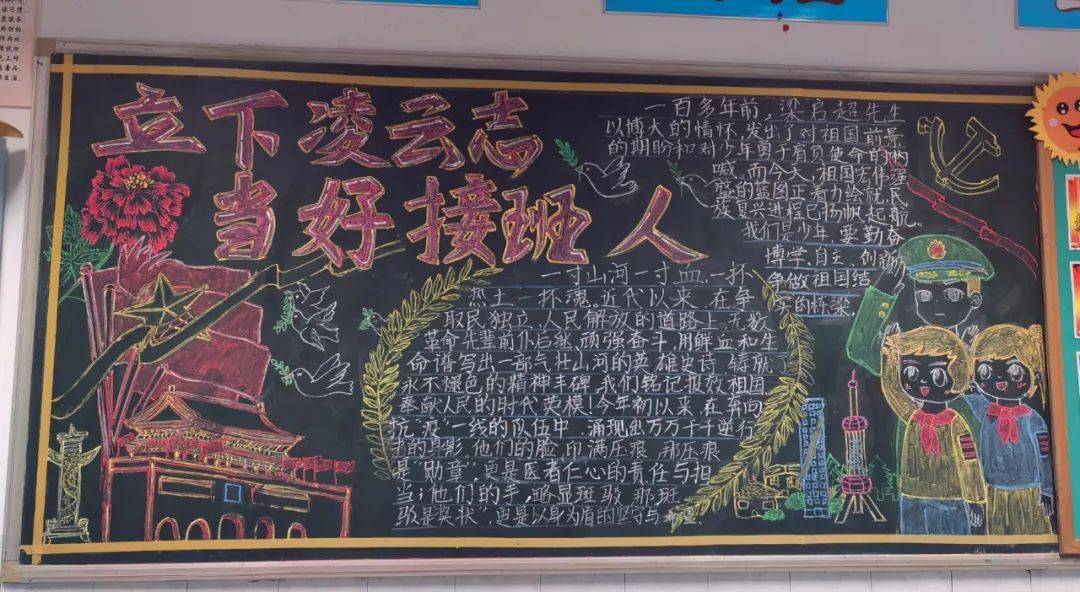 立下凌云志
当好接班人
一百多年前,梁启超先生
以博大的情怀,发出了对祖国前景
的期盼和对少年勇于肩负使命的呐
喊,而今天,祖国宏伟
的蓝图正着力绘就,民
族复兴进程已扬帆起航
我们是少年 要勤奋
博学、自主、创新
争做祖国结
实的栋梁,
一寸山河一寸血,一抔
热土一抔魂。近代以来,在争
取民族独立、人民解放的道路上,无数
革命先辈前仆后继,顽强奋斗,用鲜血和生
命谱写出一部气壮山河的英雄史诗,铸就
永不褪色的精神丰碑,我们铭记报效祖国
奉献人民的时代英模!今年初以来,在奔向
抗“疫”一线的队伍中,涌现出万万千千逆行
者的身影,他们的脸,印满压痕,那压痕
是“勋章”,更是医者仁心的责任与担
当;他们的手,略显斑驳,那斑
驳是奖状”,更是以身为盾的坚守与